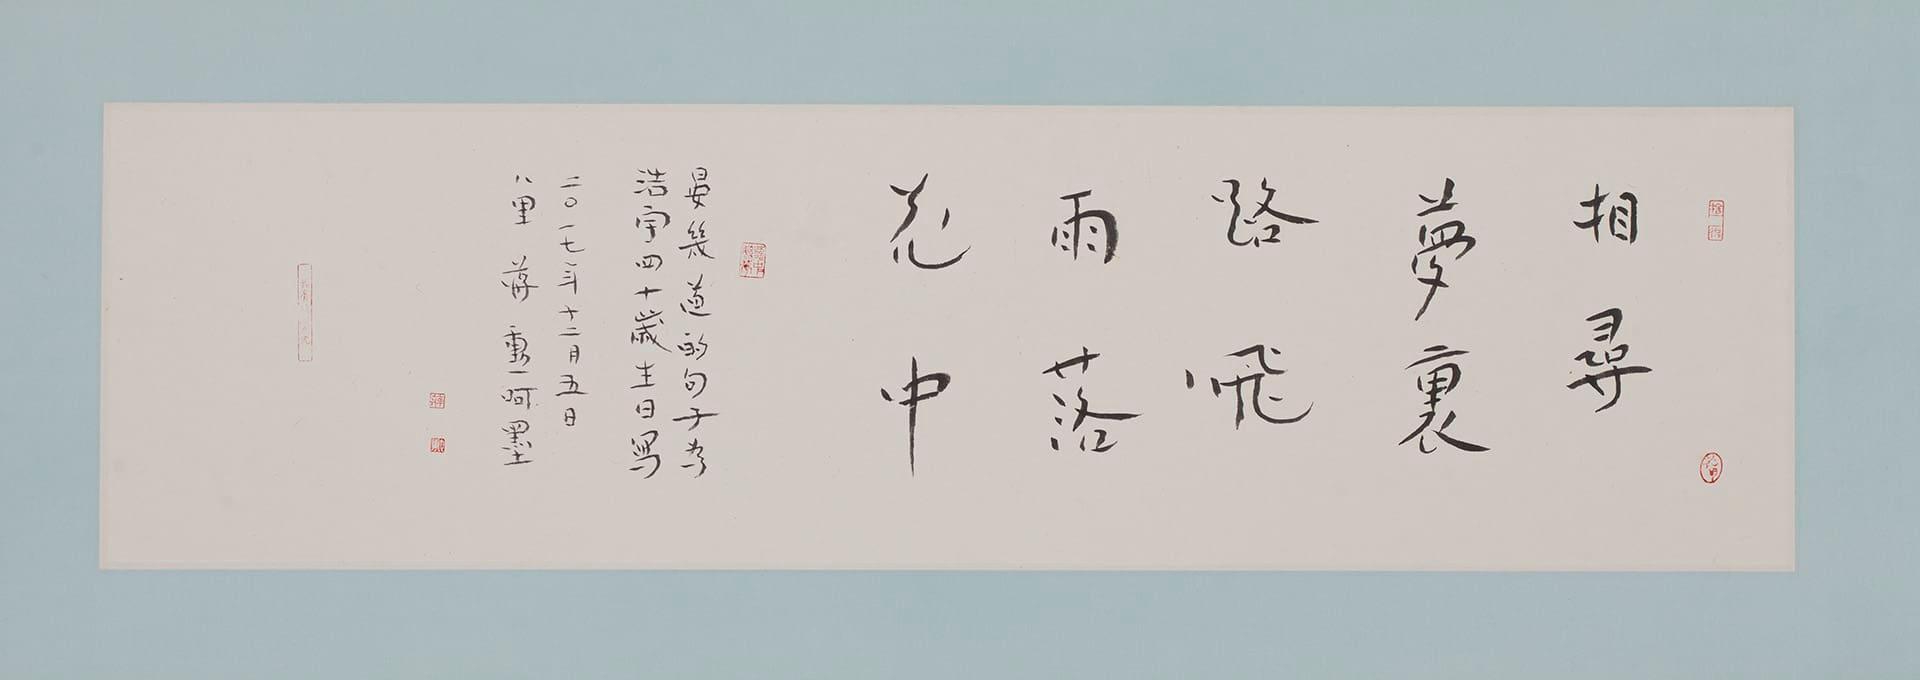 相尋
夢裏
路飛
雨落
花中
晏幾道的句子為
浩宇四十歲生日寫
二〇一七年十二月五日
八里 蔣勳一呵墨